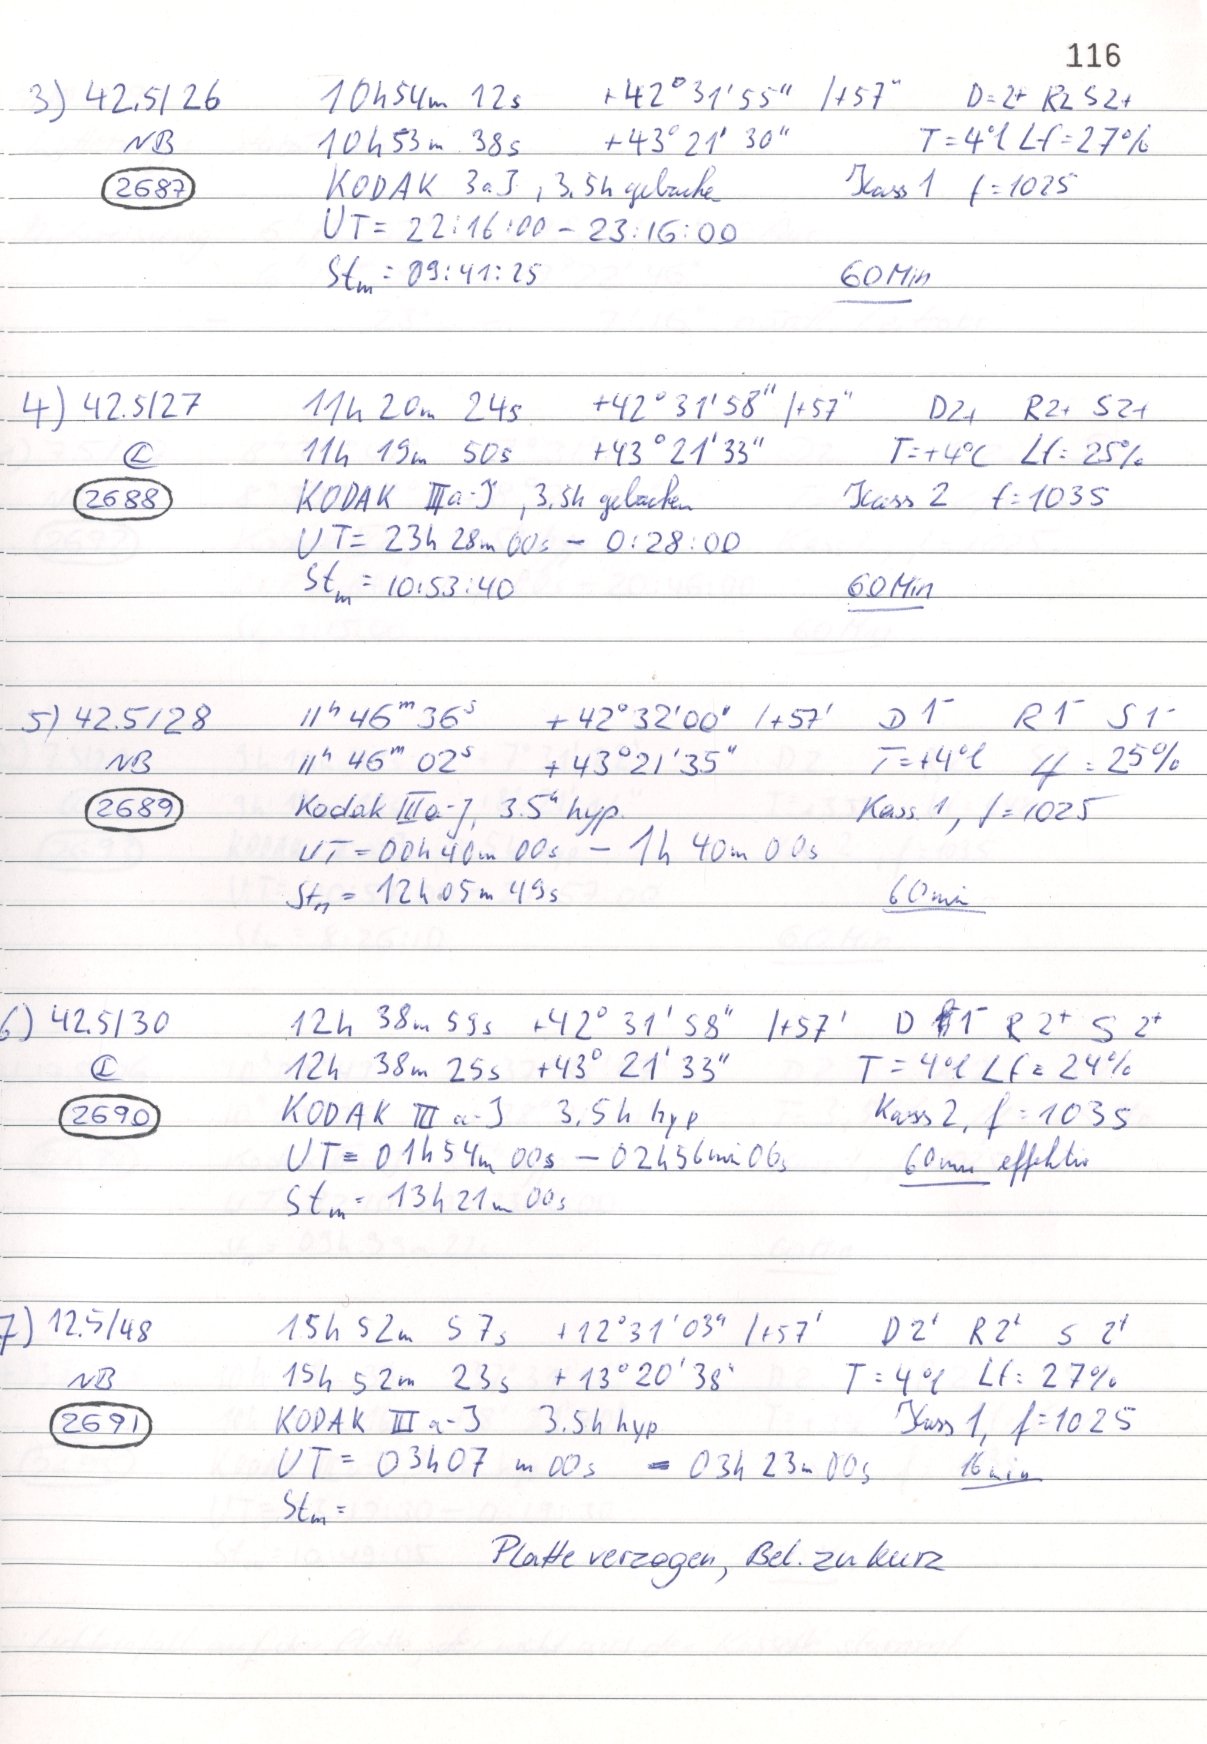 116
3) 42.5/26 10h54m 12s +42°31'55" /+57" D=2+ R2 S2+
NB 10h53m 38s +43°21'30" T=4°C Lf=27%
2687 KODAK 3aJ, 3.5h gebacken Kass 1 f=1025
UT= 22:16:00 - 23:16:00
Stm = 09:41:25 60Min
4) 42.5/27 11h 20m 24s +42°31'58" /+57" D2+ R2+ S2+
11h 19m 50s +43°21'33" T=+4°C Lf=25%
2688 KODAK IIIa-J, 3.5h gebacken Kass 2 f=1035
UT= 23h 28m 00s - 0:28:00
Stm = 10:53:40 60Min
5) 42.5/28 11h 46m 36s +42°32'00" /+57' D 1- R 1- S 1-
NB 11h 46m 02s +43°21'35" T=+4°C Lf=25%
2689 Kodak IIIa-J, 3.5h hyp. Kass. 1, f=1025
UT=00h40m 00s - 1h 40m 00s
Stm = 12h 05m 49s 60min
6) 42.5/30 12h 38m 59s +42° 31' 58" /+57' D 1- R 2+ S 2+
12h 38m 25s +43° 21' 33" T=4°C Lf=24%
2690 KODAK III a-J 3.5h hyp Kass 2, f=1035
UT= 01h54m 00s - 02h56min 06s 60min effektiv
Stm = 13h 21m 00s
7) 12.5/48 15h 52m 57s +12°31'03" /+57' D2+ R2+ S 2+
NB 15h 52m 23s +13°20'38" T=4°C Lf=27%
2691 KODAK III a-J 3.5h hyp Kass 1, f=1025
UT= 03h07 m 00s - 03h 23m 00s 16min
Stm =
Platte verzogen, Bel. zu kurz